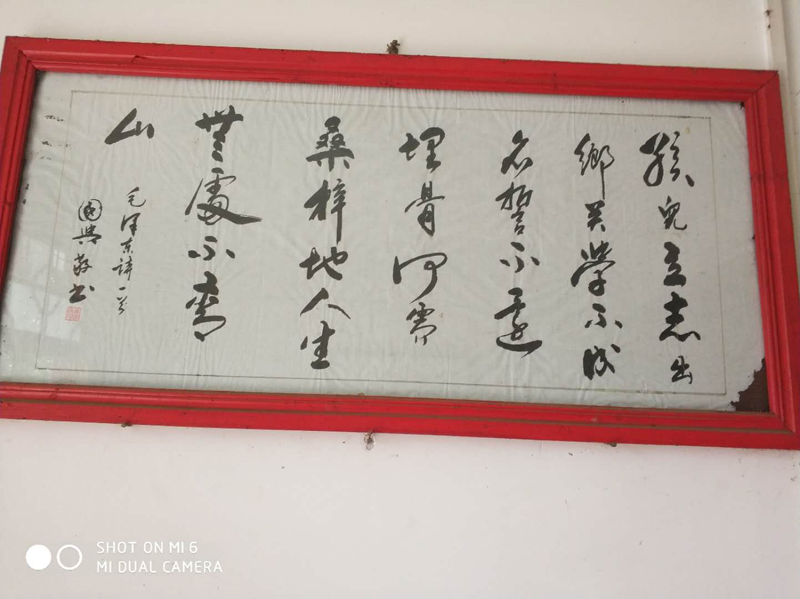 孩兒立志出
鄉关學不成
名誓不還
埋骨何需
桑梓地人生
無處不青
山
毛泽东詩一首
國興敬书
SHOT ON MI 6
MI DUAL CAMERA